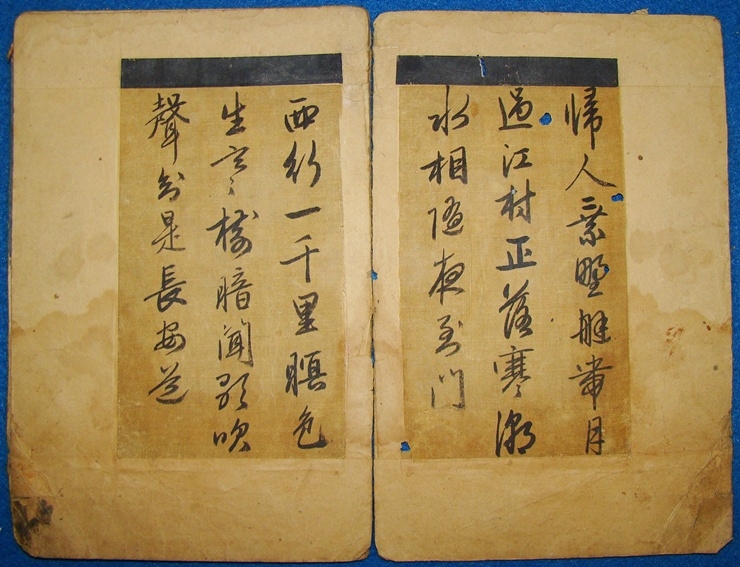 帰人乗野艇帶月
過江村正落寒潮
水相隨夜到門
西行一千里暝色
生寒樹暗聞歌吹
聲知是長安道